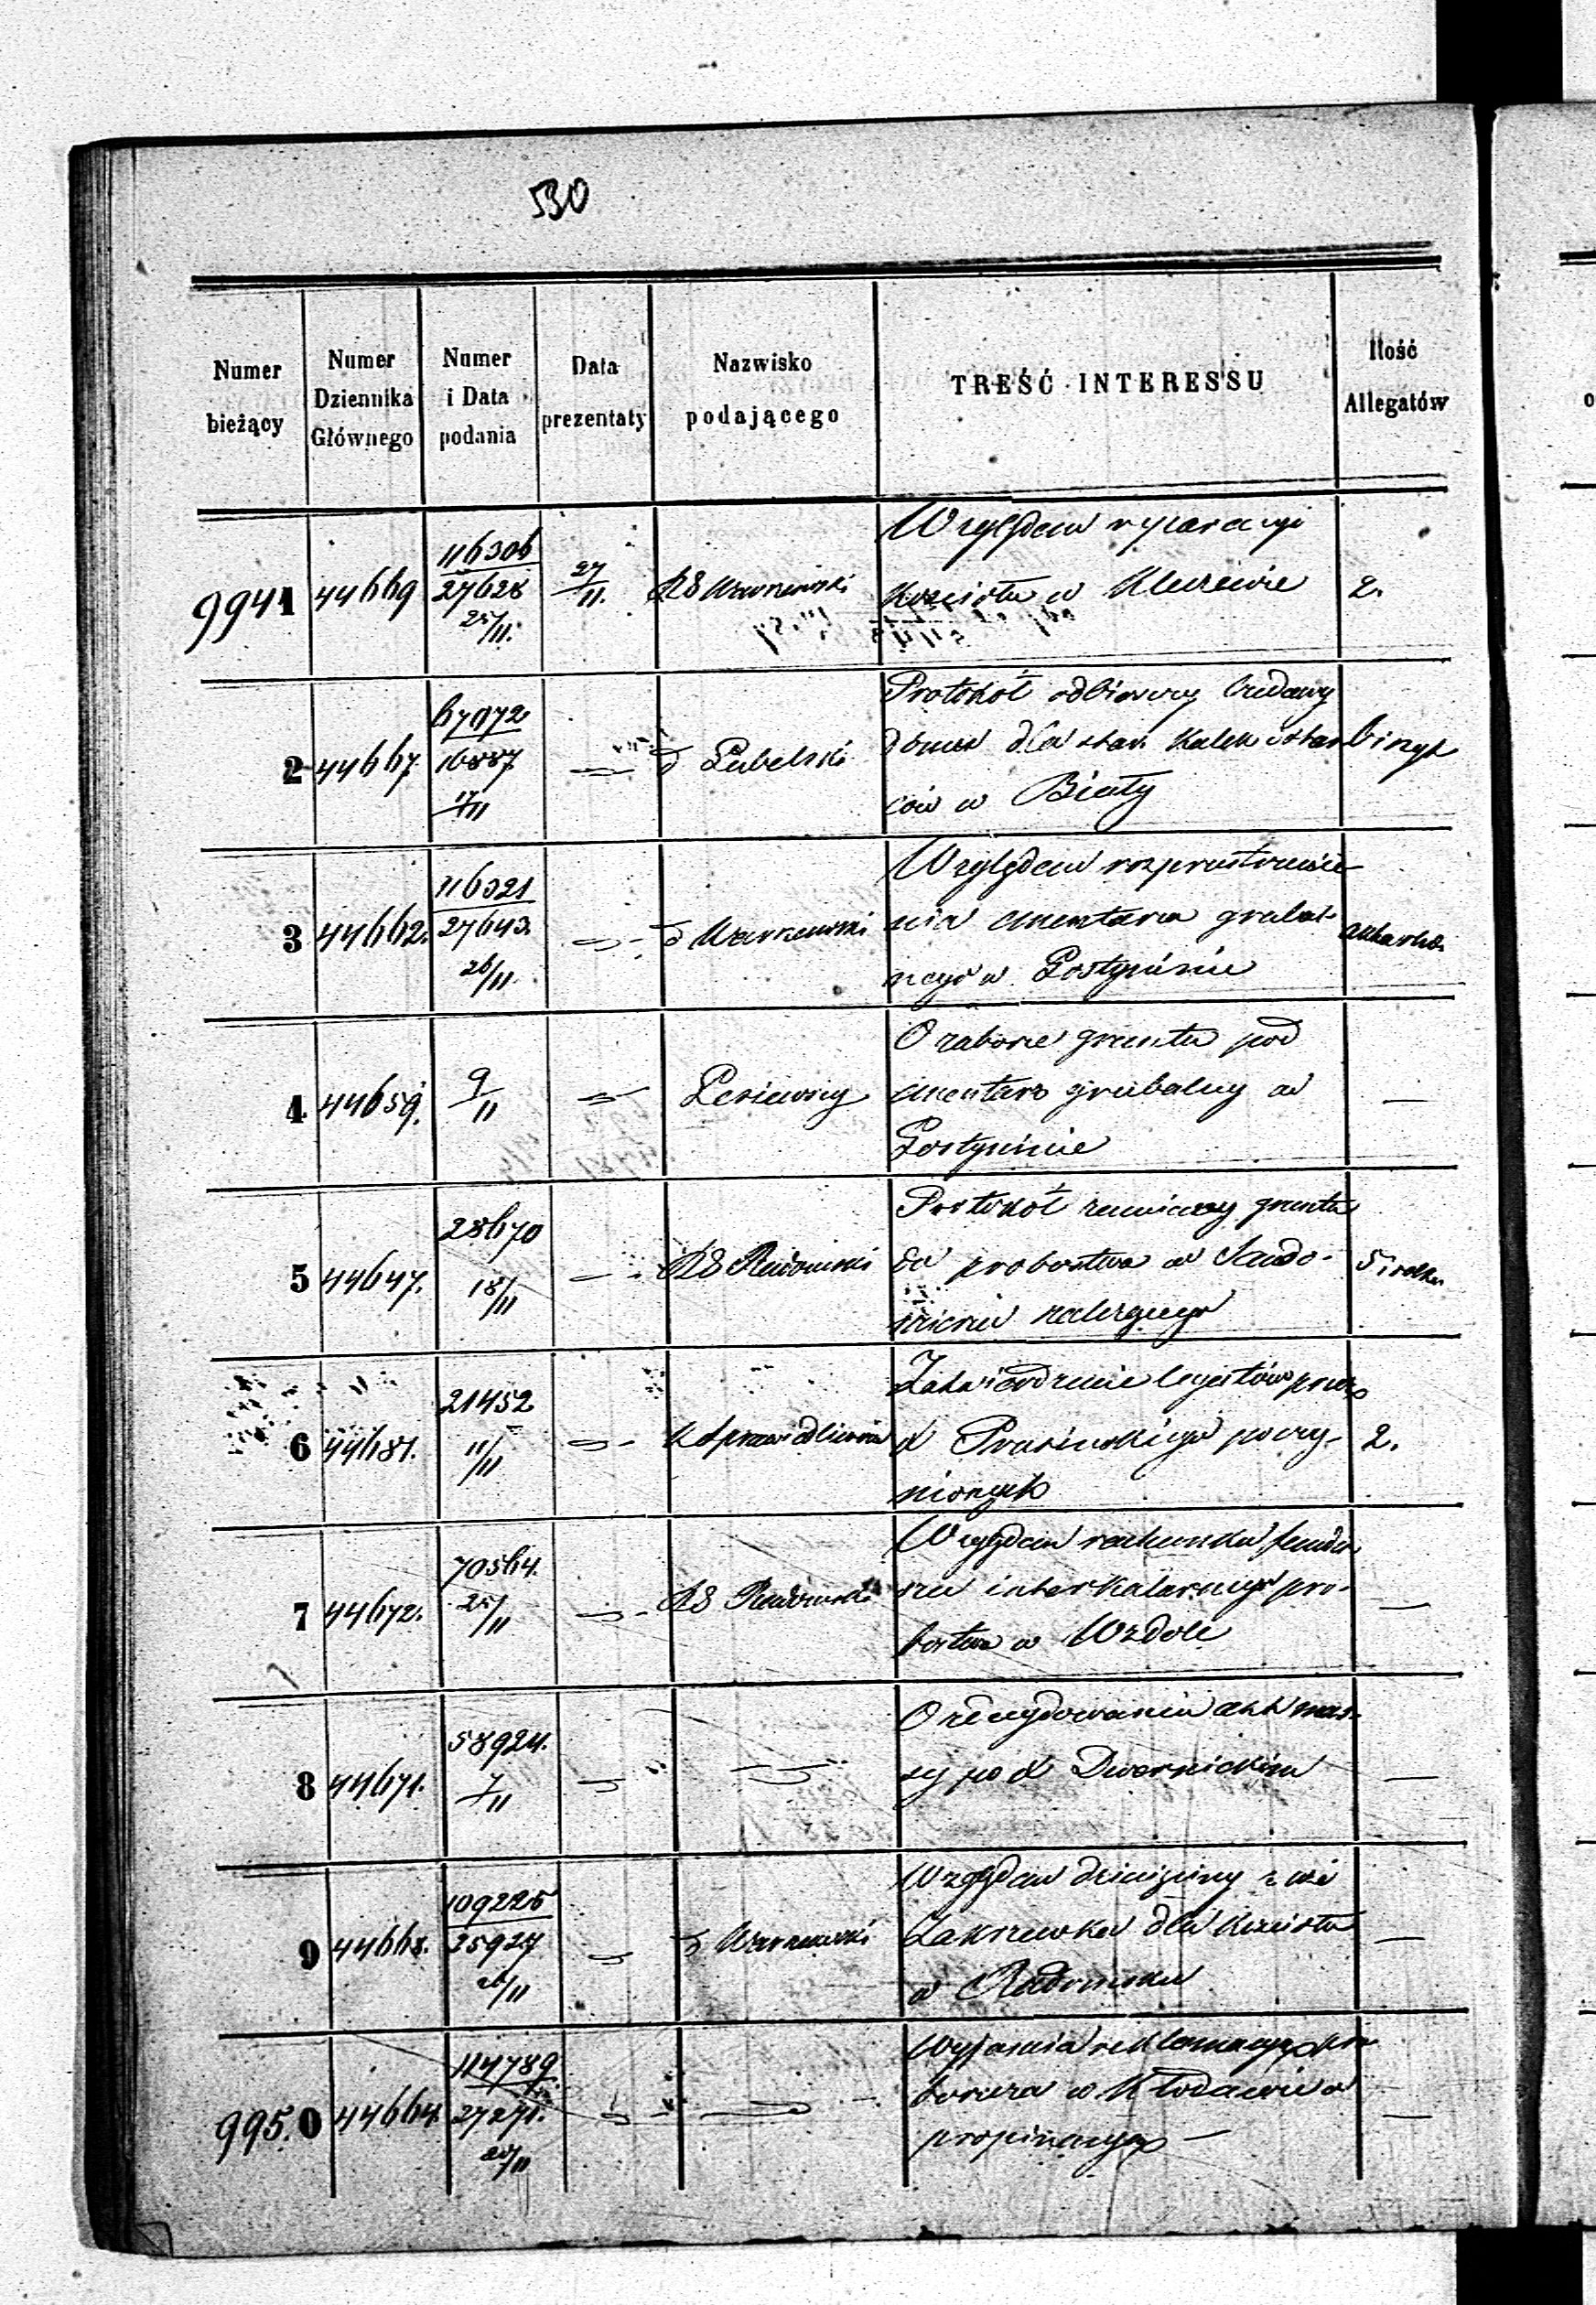 530
Numer bieżący
Numer Dziennika Głównego
Numer i Data podania
Data prezentaty
Nazwisko podającego
TREŚĆ INTERESSU
Ilość Allegatów
9941 44669 116306 27628 25/11. 27/11. RG Warszawski Względem reparacyi
kościoła w 2.
2 44667 67972 16887 17/11 G Lubelski Protokół odbiorczy budowy
domu dla star. Kalek i star
ców w Biały
3 44662. 116321 27643. 26/11. G Warszawski Względem rozprzestrzenie
nia cmentarza grzebal-
nego w Gostyninie
4 44659. 9/11 O zaborze gruntu pod
cmentarz grzebalny w
Gostyninie
5 44647. 28670 18/11 RG Radomski Protokół zamiany gruntu
do probostwa w Sando-
mierzu należącego
6 44681. 21452 11/11 K Sprawiedliwości Zatwierdzenie legatów przez
X poczy-
nionych 2.
7 44672. 70564. 25/11 RG Radomski Względem rachunku fundu
szu interkalarnego pro-
bostwa w Wzdole
8 44671. 58924. 7/11 O zdecydowanie akt mas-
sy po X Dwernickim
9 44668. 109225 25927 26/11 G Warszawski Względem dziesięciny z wsi
Zakrzewka dla kościoła
w Radomsku
9950 44664. 114789 27271. 20/11 Wyjaśnia reklamacyą pro
boszcza w Kłodawie o
propinacyą —